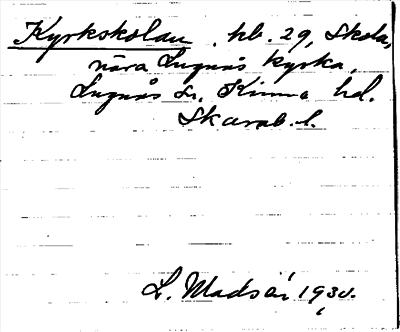 Kyrkskolan, hb. 29, Skola,
nära Lugnås kyrka,
Lugnås sn, Kinne hd.
Skarab. l.
L. Madsén 1930.